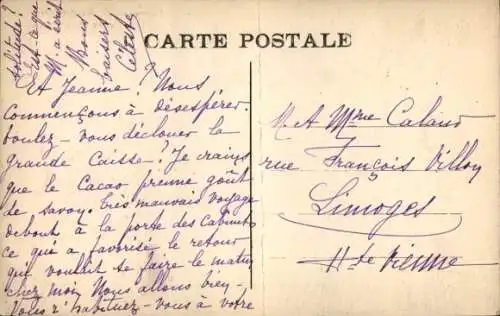 CARTE POSTALE
Et Jeanne? Nous
commençons à désespérer.
voulez-vous déclouer la
grande Caisse-? Je crains
que le Cacao prenne goût
de savoy. Très mauvais voyage
debout à la porte des Cabinets
ce qui a favorisé le retour
qui voulait se faire le matin
chez moi Nous allons bien-
Vous z'habituez-vous à votre
solitude?
Est-ce que
M. a écrit
Bons
baisers
Céleste
M. et Mme Calaud
rue François Villon
Limoges
Hte Vienne